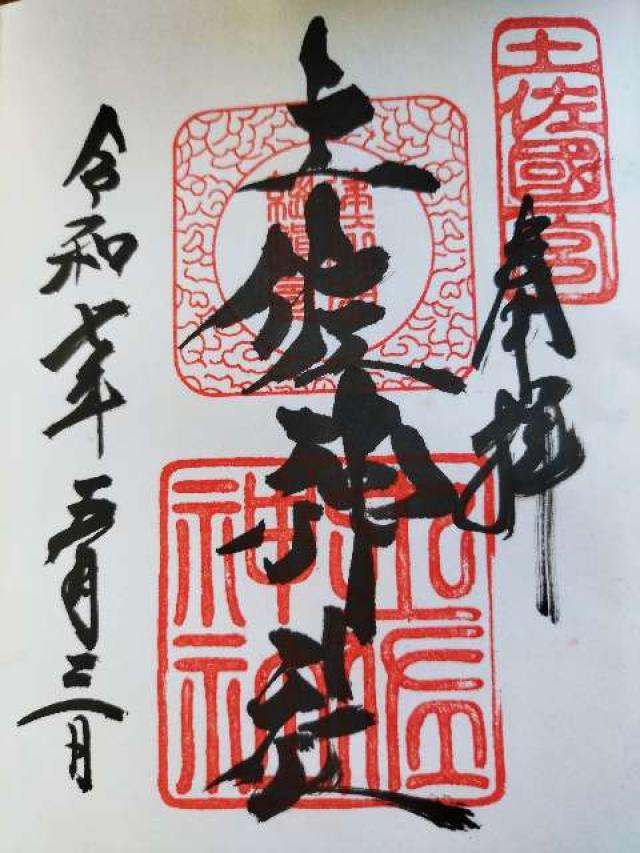 土佐國一宮
奉拝
土佐神社
土佐神社
令和七年五月三日